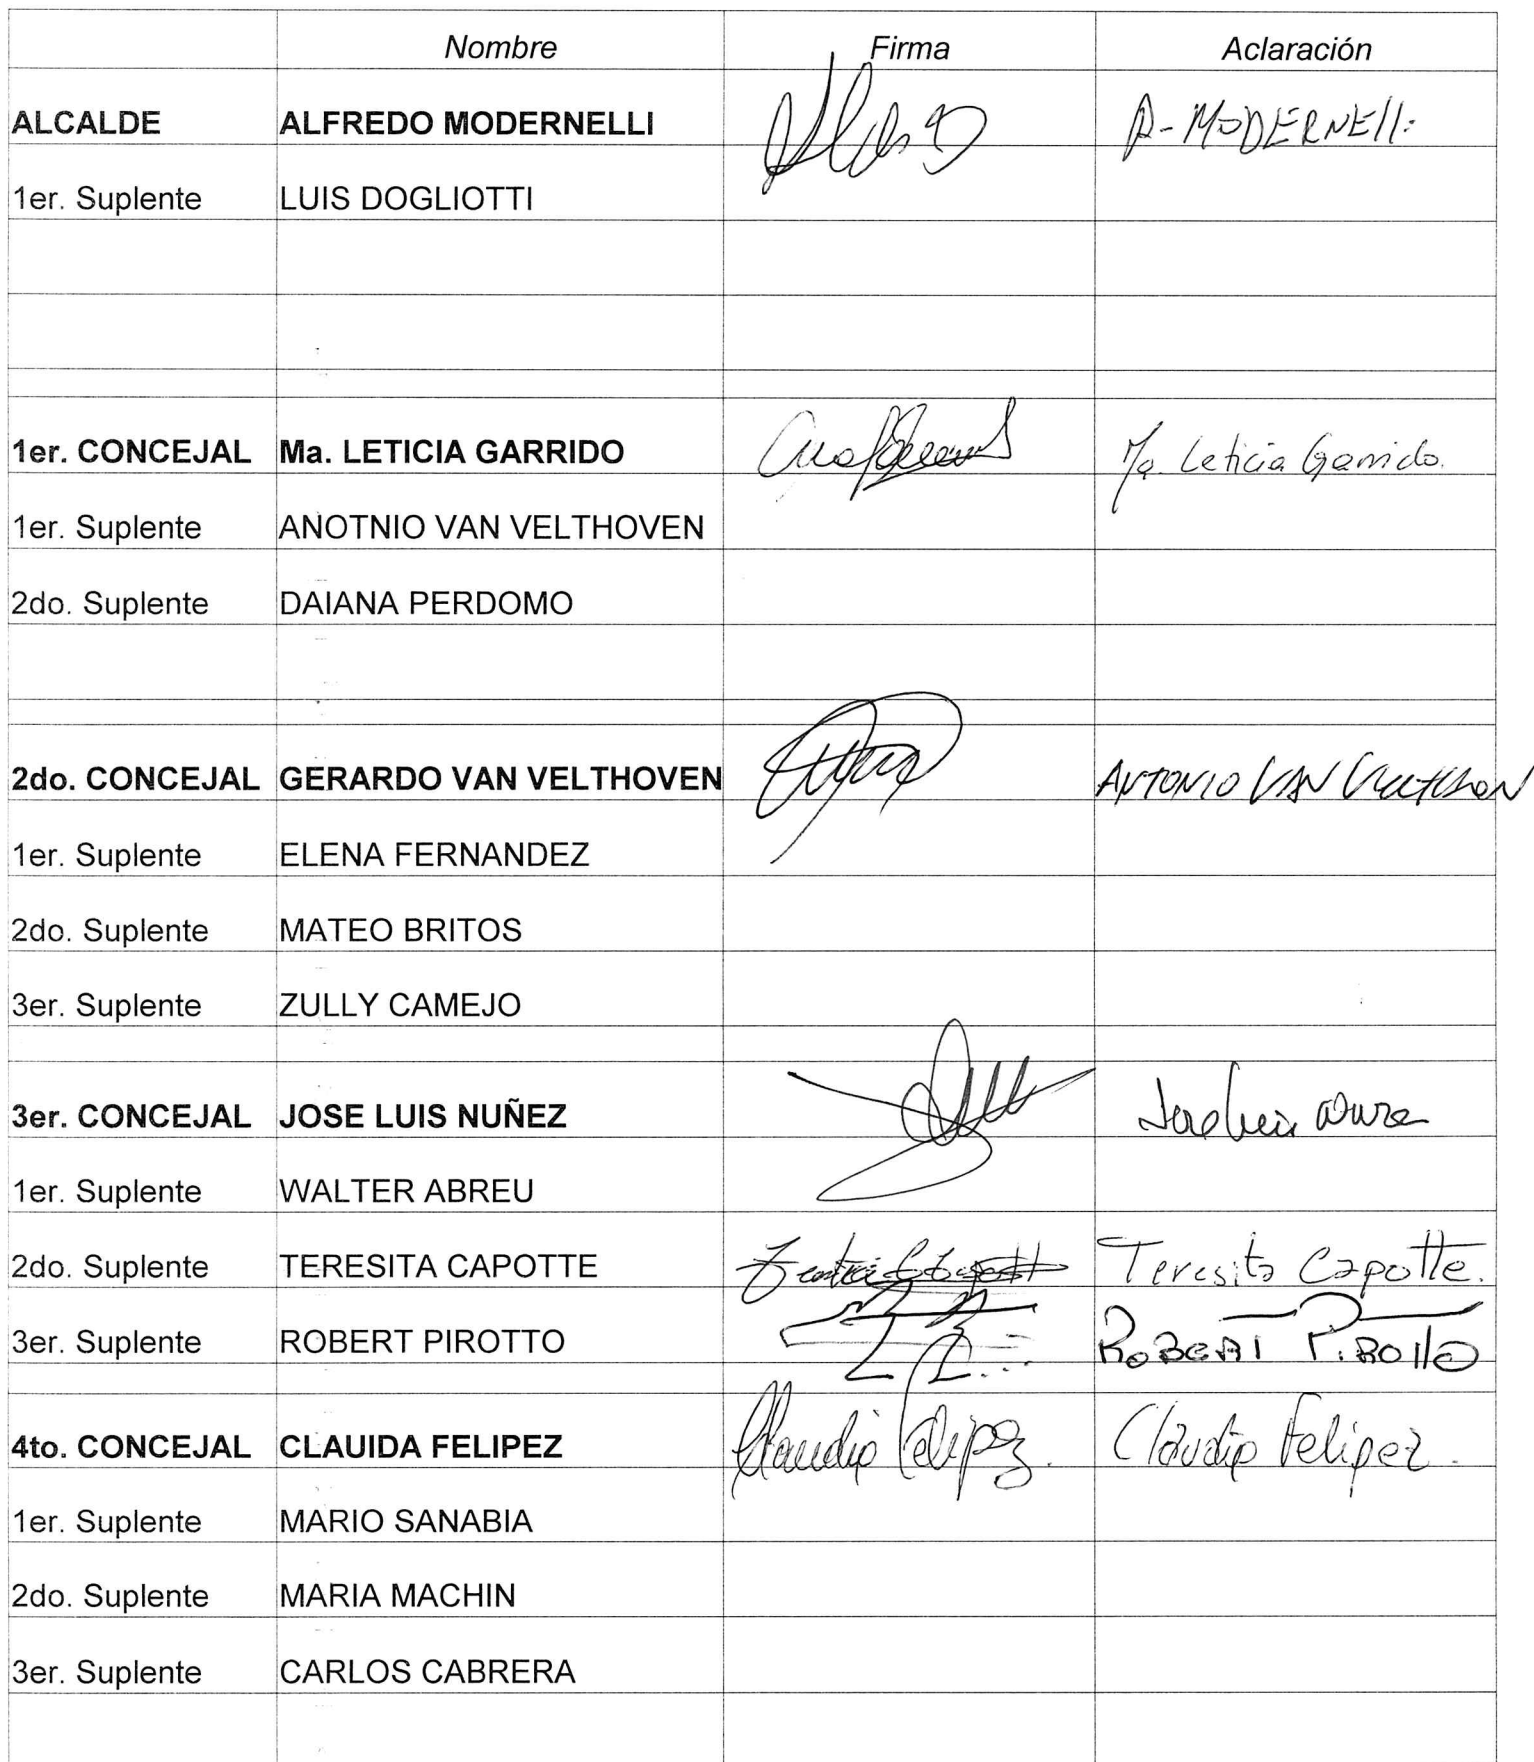 Nombre Firma Aclaración
ALCALDE ALFREDO MODERNELLI A-MODERNELLI
1er. Suplente LUIS DOGLIOTTI
1er. CONCEJAL Ma. LETICIA GARRIDO Ma. Leticia Garrido.
1er. Suplente ANOTNIO VAN VELTHOVEN
2do. Suplente DAIANA PERDOMO
2do. CONCEJAL GERARDO VAN VELTHOVEN ANTONIO VAN
1er. Suplente ELENA FERNANDEZ
2do. Suplente MATEO BRITOS
3er. Suplente ZULLY CAMEJO
3er. CONCEJAL JOSE LUIS NUÑEZ
1er. Suplente WALTER ABREU
2do. Suplente TERESITA CAPOTTE Teresita Capotte.
3er. Suplente ROBERT PIROTTO ROBERT PIROTTO
4to. CONCEJAL CLAUIDA FELIPEZ Claudia Felipez. Claudia Felipez.
1er. Suplente MARIO SANABIA
2do. Suplente MARIA MACHIN
3er. Suplente CARLOS CABRERA